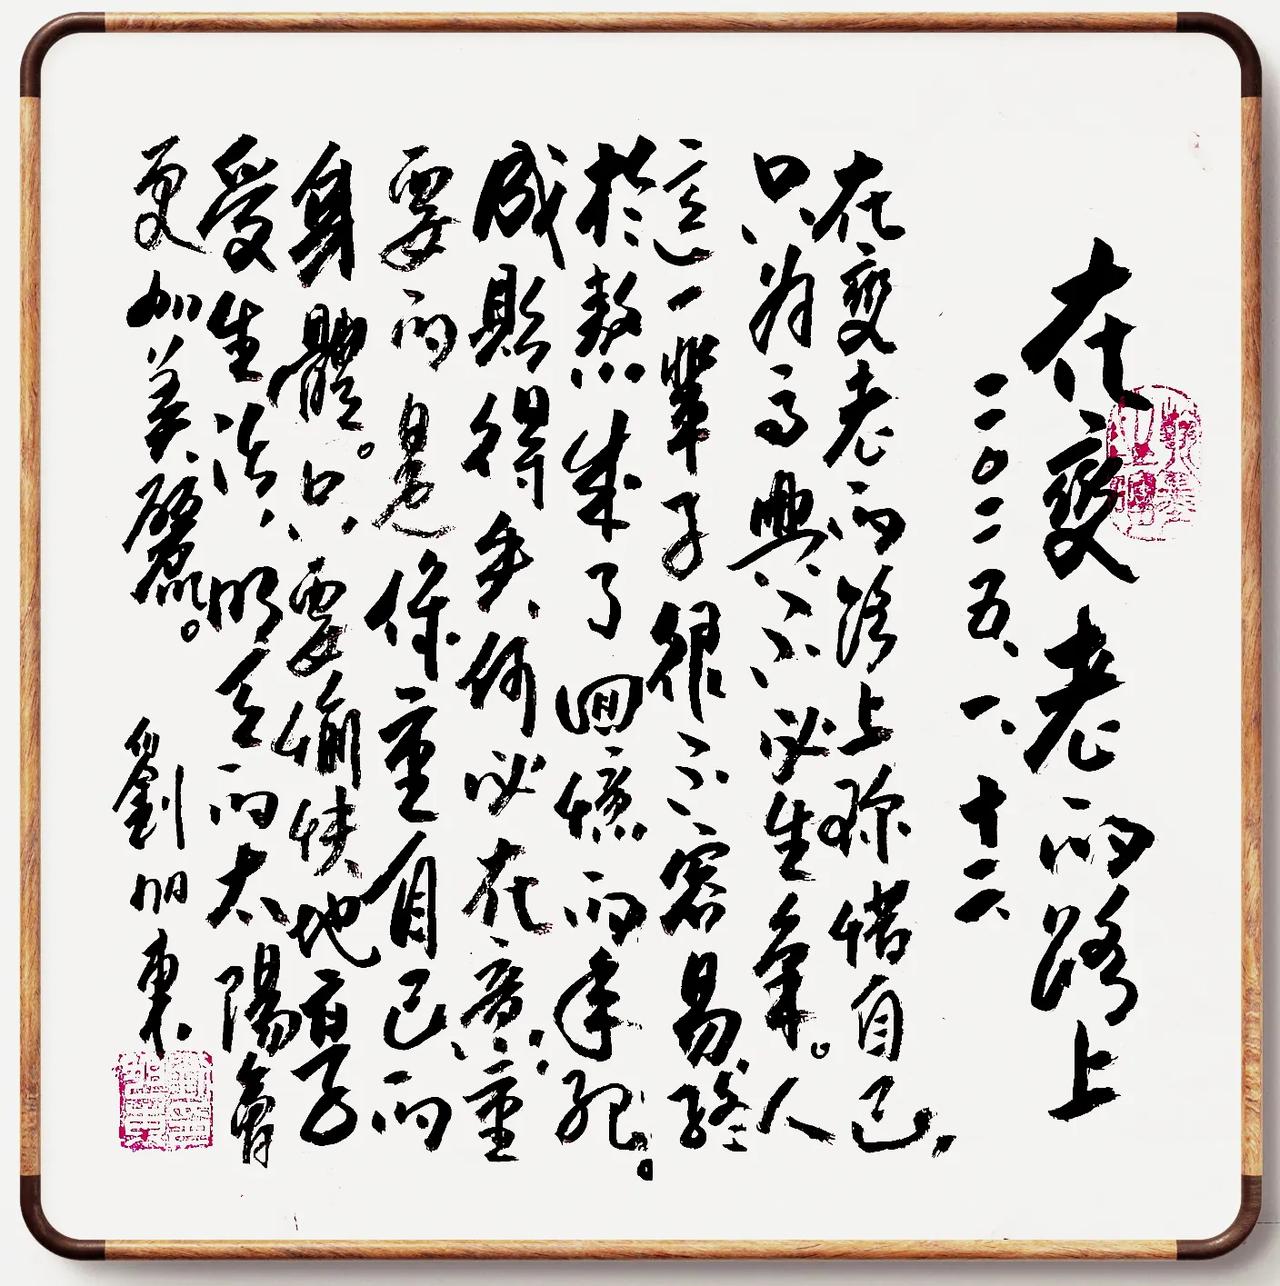 在變老的路上
二〇二五、一、十六
在變老的路上珍惜自己,
只为高興不必生氣。人
這一輩子很不容易,終
於熬成了迴憶的年紀。
成敗得失,何必在意;重
要的是保重自己的
身體。只要愉快地享
受生活,明天的太陽會
更加美麗。
劉明東